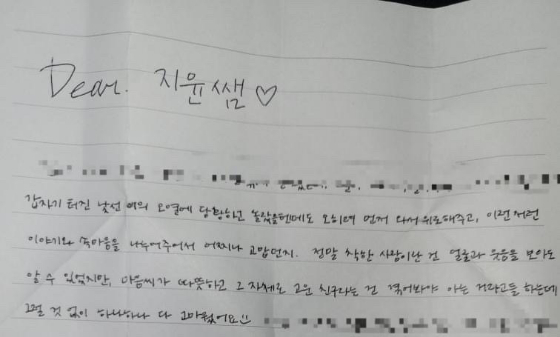 Dear. 지윤쌤♡
갑자기 터진 낯선 애의 오열에 당황하고 놀랐을텐데도 오히려 먼저 다가 위로해주고, 이런저런
이야기와 속마음을 나누어주어서 어찌나 고맙던지. 정말 착한 사람이란 건 얼굴과 웃음을 보아도
알 수 있었지만, 마음씨가 따뜻하고 그 자체로 고운 친구라는 건 겪어봐야 아는 거라고들 하는데
그럴 것 없이 하나하나 다 고마웠어요!!